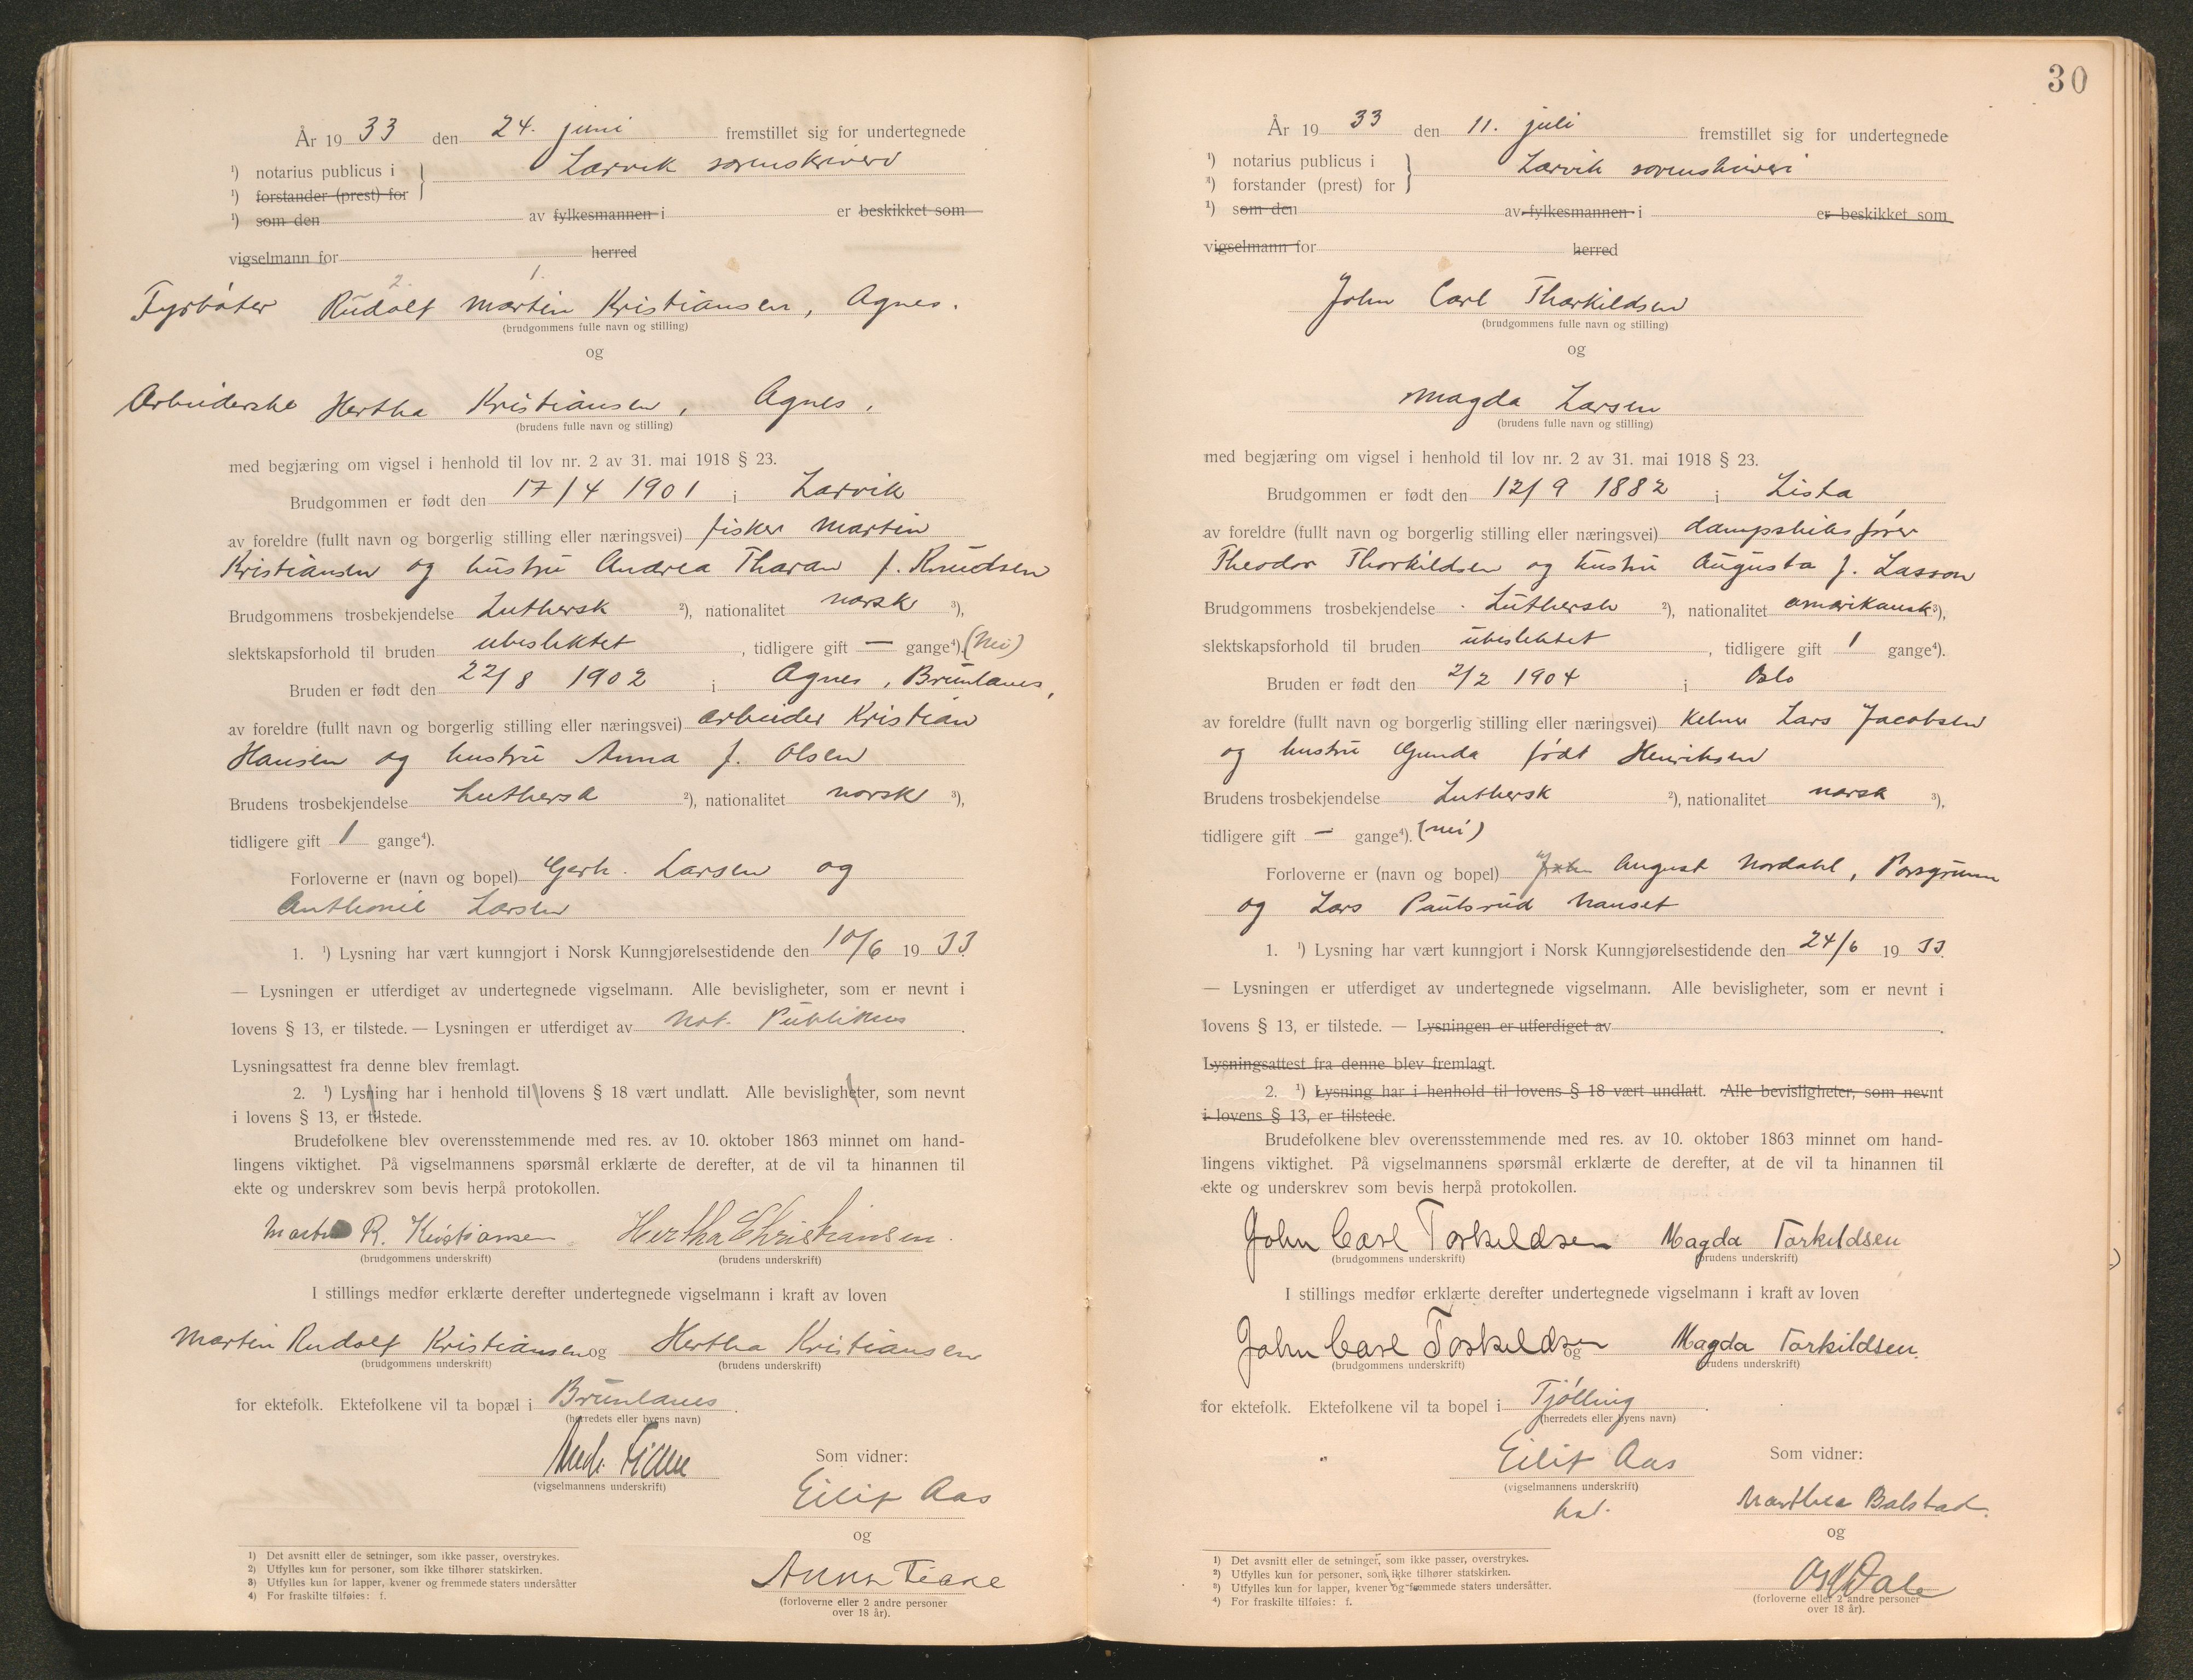 År 1933 den 24. juni fremstillet sig for undertegnede
¹) notarius publicus i } Larvik sorenskriveri
¹) forstander (prest) for
¹) som den av fylkesmannen i er beskikket som
vigselmann for herred
2. 1.
Fyrbøter Rudolf Martin Kristiansen, Agnes.
(brudgommens fulle navn og stilling)
og
Arbeiderske Hertha Kristiansen, Agnes.
(brudens fulle navn og stilling)
med begjæring om vigsel i henhold til lov nr. 2 av 31. mai 1918 § 23.
Brudgommen er født den 17/4 1901 i Larvik
av foreldre (fullt navn og borgerlig stilling eller næringsvei) fisker Martin
Kristiansen og hustru Andrea Tharan f. Knudsen
Brudgommens trosbekjendelse Luthersk ²), nationalitet norsk ³),
slektskapsforhold til bruden ubeslektet, tidligere gift — gange⁴). (Nei)
Bruden er født den 22/8 1902 i Agnes, Brunlanes,
av foreldre (fullt navn og borgerlig stilling eller næringsvei) arbeider Kristian
Hansen og hustru Anna f. Olsen
Brudens trosbekjendelse Luthersk ²), nationalitet norsk ³),
tidligere gift 1 gange⁴).
Forloverne er (navn og bopel) Gerh. Larsen og
Anthonie Larsen
1. ¹) Lysning har vært kunngjort i Norsk Kunngjørelsestidende den 10/6 1933.
— Lysningen er utferdiget av undertegnede vigselmann. Alle bevisligheter, som er nevnt i
lovens § 13, er tilstede. — Lysningen er utferdiget av Not. Publikus.
Lysningsattest fra denne blev fremlagt.
2. ¹) Lysning har i henhold til lovens § 18 vært undlatt. Alle bevisligheter, som nevnt
i lovens § 13, er tilstede.
Brudefolkene blev overensstemmende med res. av 10. oktober 1863 minnet om hand-
lingens viktighet. På vigselmannens spørsmål erklærte de derefter, at de vil ta hinannen til
ekte og underskrev som bevis herpå protokollen.
Martin R. Kristiansen Hertha Christiansen.
(brudgommens underskrift) (brudens underskrift)
I stillings medfør erklærte derefter undertegnede vigselmann i kraft av loven
Martin Rudolf Kristiansen og Hertha Kristiansen
(brudgommens underskrift) (brudens underskrift)
for ektefolk. Ektefolkene vil ta bopæl i Brunlanes.
(herredets eller byens navn)
Fiane Som vidner:
(vigselmannens underskrift)
Eilif Aas
og
Anna Fiane
(forloverne eller 2 andre personer
over 18 år).
1) Det avsnitt eller de setninger, som ikke passer, overstrykes.
2) Utfylles kun for personer, som ikke tilhører statskirken.
3) Utfylles kun for lapper, kvener og fremmede staters undersåtter
4) For fraskilte tilføies: f.
30
År 1933 den 11. juli fremstillet sig for undertegnede
¹) notarius publicus i } Larvik sorenskriveri
¹) forstander (prest) for
¹) som den av fylkesmannen i er beskikket som
vigselmann for herred
John Carl Thorkildsen
(brudgommens fulle navn og stilling)
og
Magda Larsen
(brudens fulle navn og stilling)
med begjæring om vigsel i henhold til lov nr. 2 av 31. mai 1918 § 23.
Brudgommen er født den 12/9 1882 i Lista
av foreldre (fullt navn og borgerlig stilling eller næringsvei) dampskibsfører
Theodor Thorkildsen og hustru Augusta f. Lasson
Brudgommens trosbekjendelse Luthersk ²), nationalitet amerikansk ³),
slektskapsforhold til bruden ubeslektet, tidligere gift 1 gange⁴).
Bruden er født den 2/2 1904 i Oslo
av foreldre (fullt navn og borgerlig stilling eller næringsvei) Kelner Lars Jacobsen
og hustru Gunda født Henriksen
Brudens trosbekjendelse Luthersk ²), nationalitet norsk ³),
tidligere gift — gange⁴). (nei)
Forloverne er (navn og bopel) John August Nordahl, Porsgrunn
og Lars Paulsrud Nanset
1. ¹) Lysning har vært kunngjort i Norsk Kunngjørelsestidende den 24/6 1933.
— Lysningen er utferdiget av undertegnede vigselmann. Alle bevisligheter, som er nevnt i
lovens § 13, er tilstede. — Lysningen er utferdiget av .
Lysningsattest fra denne blev fremlagt.
2. ¹) Lysning har i henhold til lovens § 18 vært undlatt. Alle bevisligheter, som nevnt
i lovens § 13, er tilstede.
Brudefolkene blev overensstemmende med res. av 10. oktober 1863 minnet om hand-
lingens viktighet. På vigselmannens spørsmål erklærte de derefter, at de vil ta hinannen til
ekte og underskrev som bevis herpå protokollen.
John Carl Torkildsen Magda Torkildsen
(brudgommens underskrift) (brudens underskrift)
I stillings medfør erklærte derefter undertegnede vigselmann i kraft av loven
John Carl Torkildsen og Magda Torkildsen.
(brudgommens underskrift) (brudens underskrift)
for ektefolk. Ektefolkene vil ta bopel i Tjølling.
(herredets eller byens navn)
Eilif Aas Som vidner:
(vigselmannens underskrift)
Marthea Bolstad.
og
Dale
(forloverne eller 2 andre personer
over 18 år).
1) Det avsnitt eller de setninger, som ikke passer, overstrykes.
2) Utfylles kun for personer, som ikke tilhører statskirken.
3) Utfylles kun for lapper, kvener og fremmede staters undersåtter.
4) For fraskilte tilføies: f.